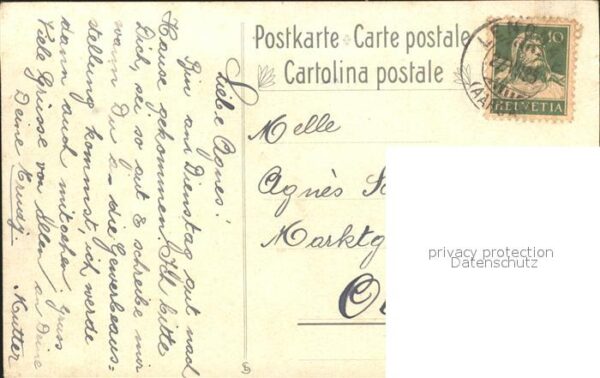 Liebe Agnes!
Bin am Dienstag gut nach
Hause gekommen. Ich bitte
Dich, sei so gut & schreibe mir
wann Du a. die Gewerbeaus-
stellung kommst, ich werde
dann auch mitgehen. Gruss
Viele Grüsse von Allen an Deine
Deine Trudy. Mutter.
Postkarte Carte postale
Cartolina postale
10
HELVETIA
Melle
Agnès
Marktg
privacy protection
Datenschutz